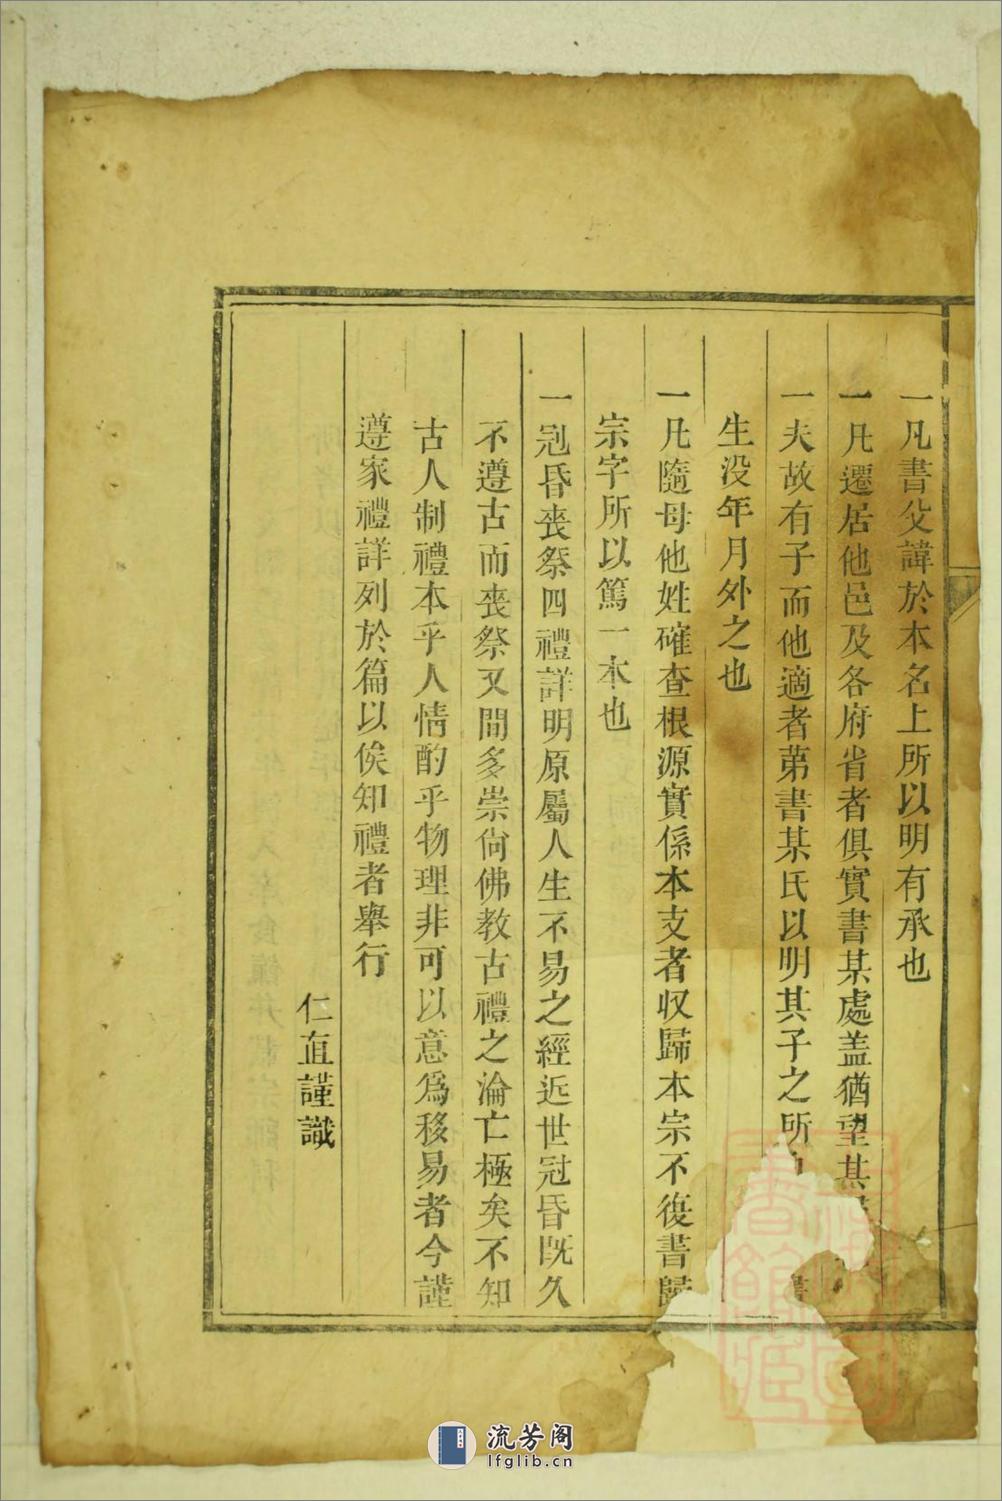 一凡書父諱於本名上所以明有承也
一凡遷居他邑及各府省者俱實書某處盖猶望其
一夫故有子而他適者苐書某氏以明其子之所
生没年月外之也
一凡隨母他姓確查根源實係本支者収歸本宗不復書歸
宗字所以篤一本也
一冠昏喪祭四禮詳明原屬人生不易之經近世冠昏既久
不遵古而喪祭又間多崇尙佛教古禮之淪亡極矣不知
古人制禮本乎人情酌乎物理非可以意爲移易者今謹
遵家禮詳列於篇以俟知禮者舉行
仁直謹識
流芳阁
lfglib.cn